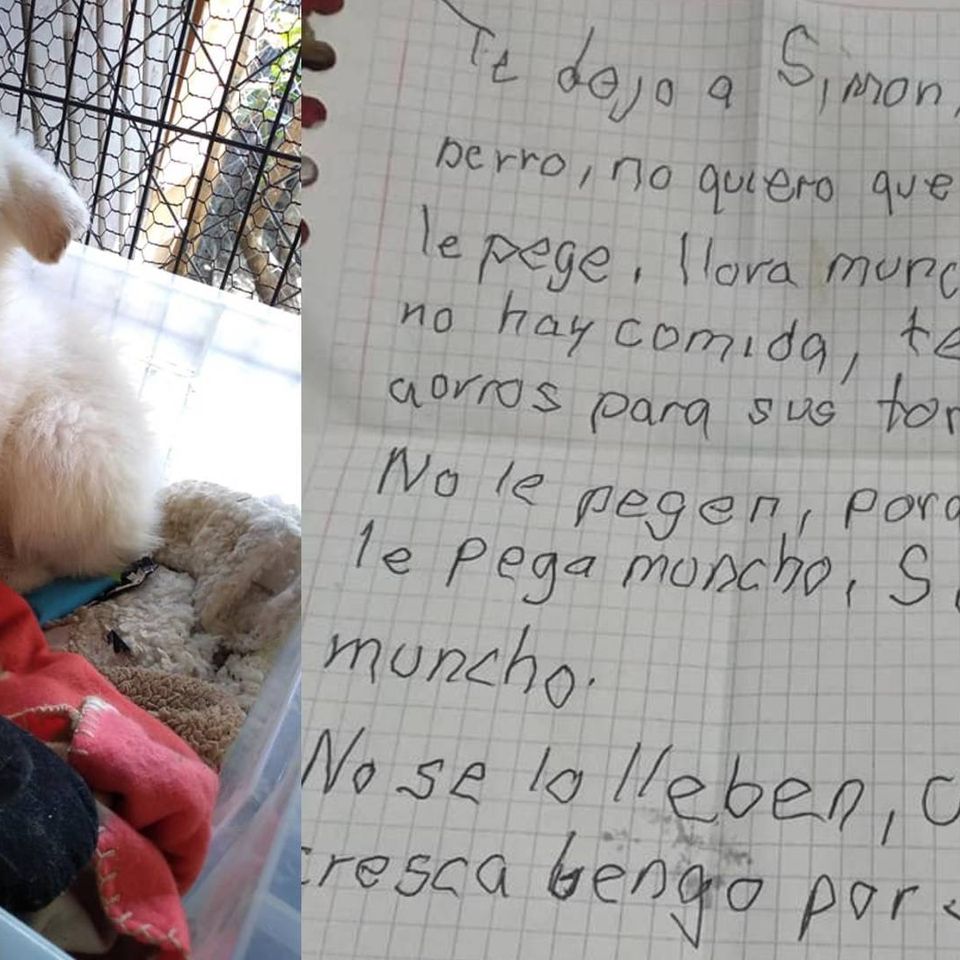 Te dejo a Simon,
perro, no quiero que
le pege, llora munc
no hay comida, te
aorros para sus tor
No le pegen, porq
le pega moncho, S
muncho.
No se lo lleben, c
cresca bengo por